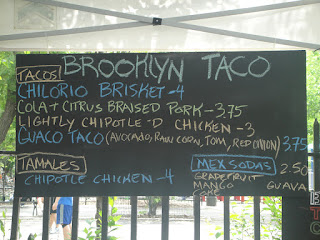 BROOKLYN TACO
TACOS
CHILORIO BRISKET-4
COLA + CITRUS BRAISED PORK-3.75
LIGHTLY CHIPOTLE-D CHICKEN-3
GUACO TACO (AVOCADO, RAW CORN, TOM, RED ONION) 3.75
TAMALES
CHIPOTLE CHICKEN-4
MEX SODAS 2.50
GRAPEFRUIT
MANGO GUAVA